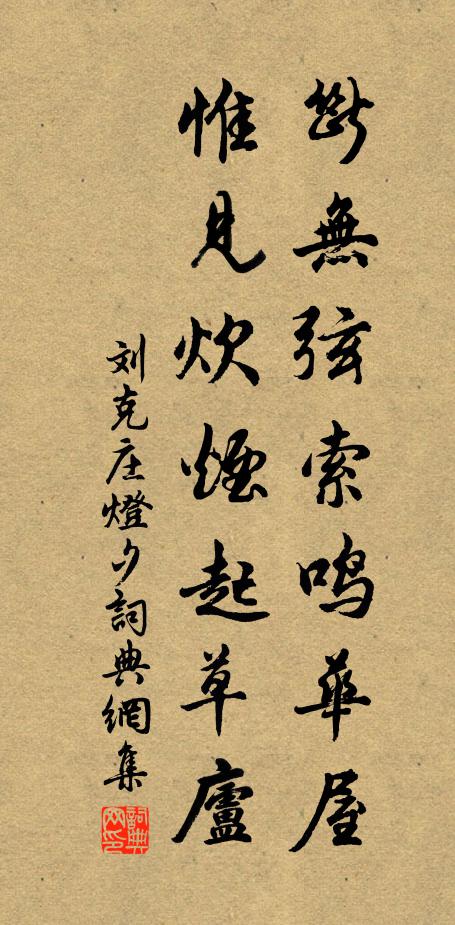 斷無弦索鳴華屋
惟見炊煙起草廬
刘克庄燈夕詞典網集
詞典网印